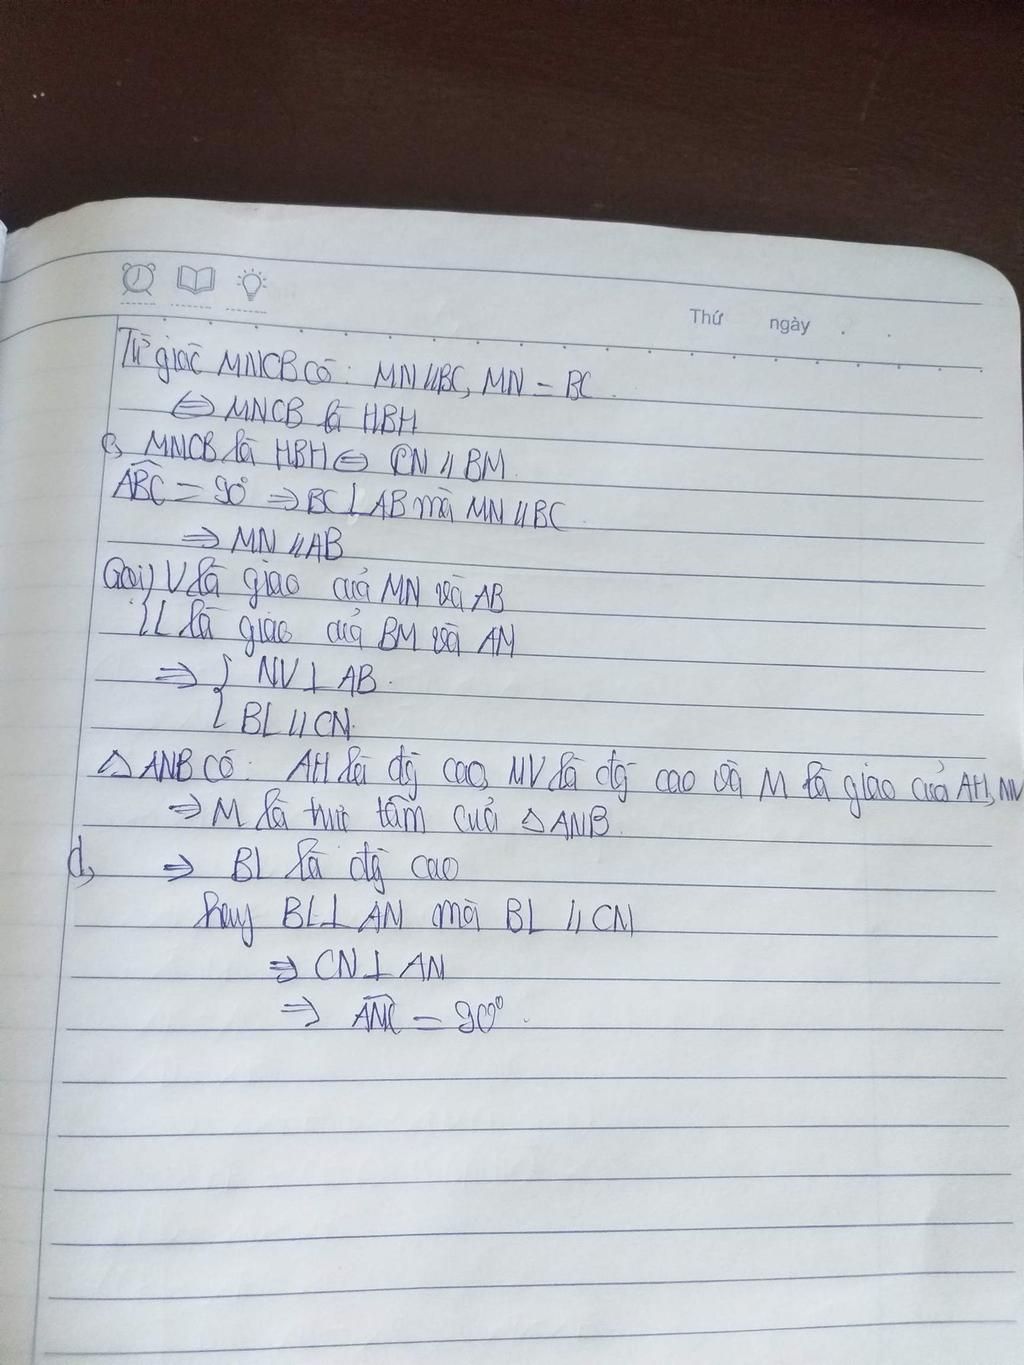 Thứ ngày
Tứ giác MNCB có: MN//BC, MN = BC.
⇔ MNCB là HBH
c, MNCB là HBH ⇔ CN // BM.
ABC = 90° ⇒ BC ⊥ AB mà MN // BC.
⇒ MN // AB
Gọi } V là giao của MN và AB
{ L là giao của BM và AM
⇒ { NV ⊥ AB.
{ BL // CN.
△ ANB có: AH là đg cao, NV là đg cao và M là giao của AH, NV
⇒ M là trực tâm của △ ANB.
d, ⇒ BL là đg cao
hay BL ⊥ AN mà BL // CN
⇒ CN ⊥ AN
⇒ ANC = 90°.